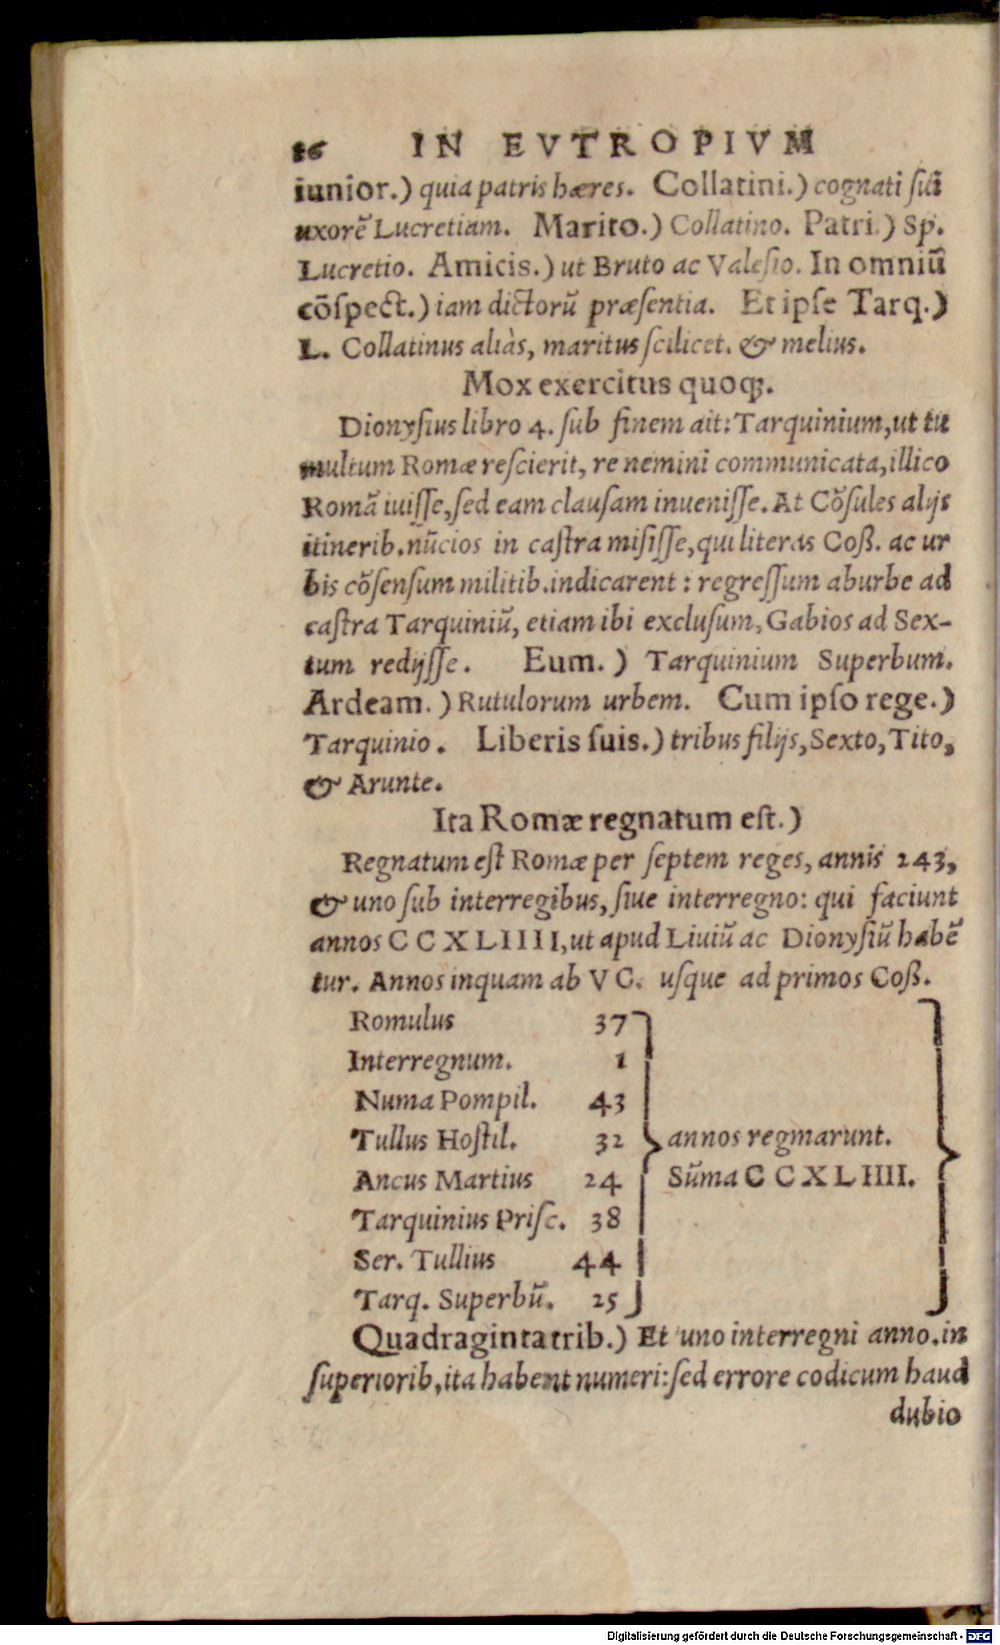 16 IN EVTROPIVM
iunior.) quia patris hæres. Collatini.) cognati sui
uxorẽ Lucretiam. Marito.) Collatino. Patri.) Sp.
Lucretio. Amicis.) ut Bruto ac Valesio. In omniũ
cõspect.) iam dictorũ præsentia. Et ipse Tarq.)
L. Collatinus aliàs, maritus scilicet. & melius.
Mox exercitus quoq;.
Dionysius libro 4. sub finem ait: Tarquinium, ut tu
multum Romæ rescierit, re nemini communicata, illico
Romã iuisse, sed eam clausam inuenisse. At Cõsules alijs
itinerib. nũcios in castra misisse, qui literas Coß. ac ur
bis cõsensum militib. indicarent: regressum ab urbe ad
castra Tarquiniũ, etiam ibi exclusum, Gabios ad Sex-
tum redijsse. Eum.) Tarquinium Superbum.
Ardeam.) Rutulorum urbem. Cum ipso rege.)
Tarquinio. Liberis suis.) tribus filijs, Sexto, Tito,
& Arunte.
Ita Romæ regnatum est.)
Regnatum est Romæ per septem reges, annis 243,
& uno sub interregibus, siue interregno: qui faciunt
annos CCXLIIII, ut apud Liuiũ ac Dionysiũ habẽ
tur. Annos inquam ab VC. usque ad primos Coß.
Romulus 37
Interregnum. 1
Numa Pompil. 43
Tullus Hostil. 32 annos regnarunt.
Ancus Martius 24 Sũma CCXLIIII.
Tarquinius Prisc. 38
Ser. Tullius 44
Tarq. Superbũ. 25
Quadraginta trib.) Et uno interregni anno. in
superiorib. ita habent numeri: sed errore codicum haud
dubio
Digitalisierung gefördert durch die Deutsche Forschungsgemeinschaft - DFG